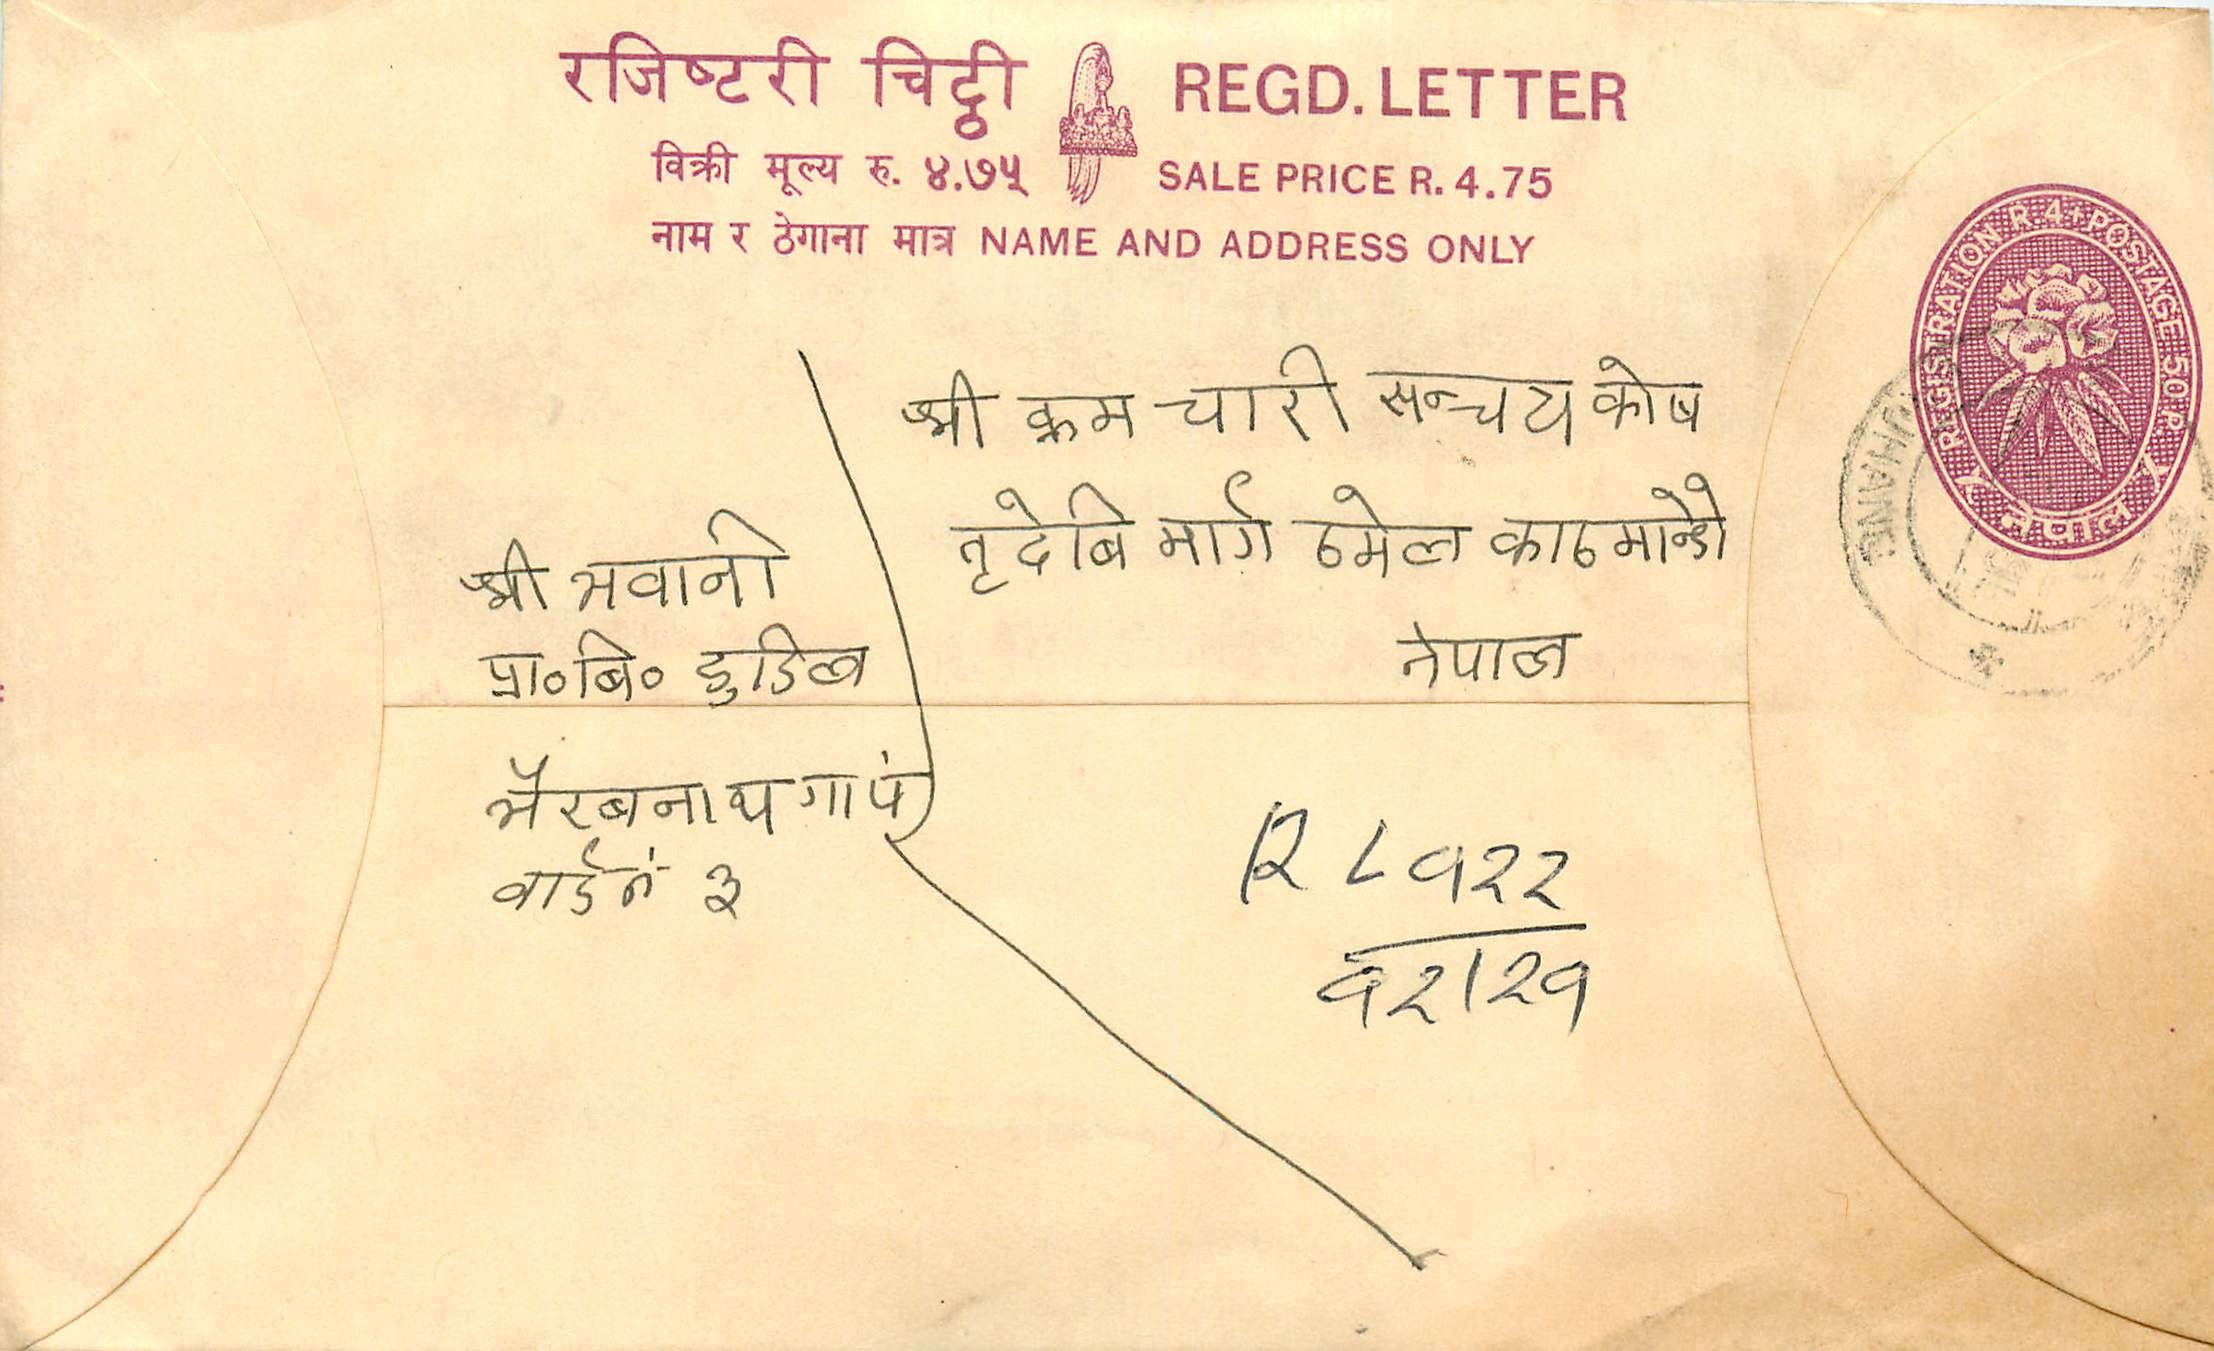 रजिष्टरी चिट्ठी REGD. LETTER
विक्री मूल्य रु. ४.७५ SALE PRICE R. 4.75
नाम र ठेगाना मात्र NAME AND ADDRESS ONLY
REGISTRATION R. 4+POSTAGE 50 P.
नेपाल
श्री क्रम चारी सन्चय कोष
तृदेबि मार्ग ठमेल काठमान्डौ
नेपाल
श्री भवानी
प्रा०बि० डुडिल
भैरबनाथ गा पं
वार्ड नं ३
R ८१२२
१२।२१